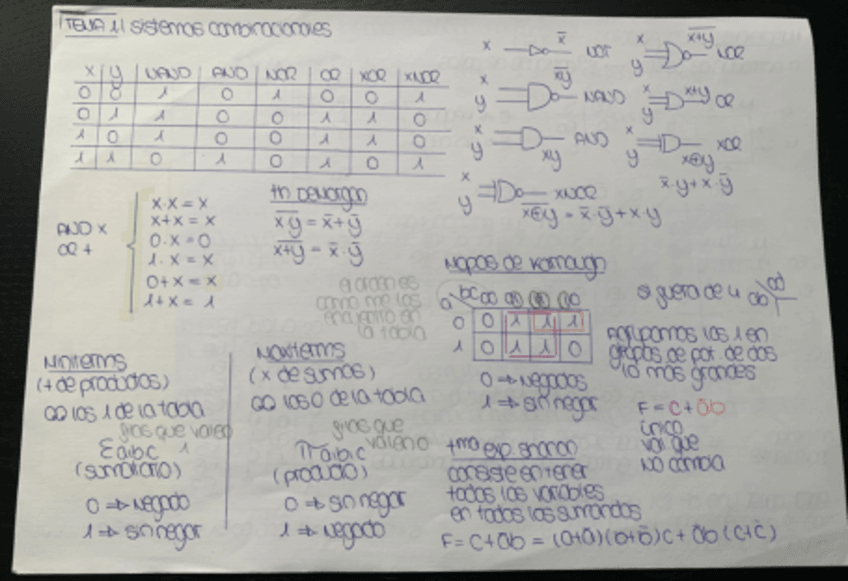 TEMA 1 | sistemas combinacionales
x y NAND AND NOR OR XOR XNOR
0 0 1 0 1 0 0 1
0 1 1 0 0 1 1 0
1 0 1 0 0 1 1 0
1 1 0 1 0 1 0 1
x x̄ NOT
x y x̄+ȳ NOR
x y x̄ȳ NAND
x y x+y OR
x y xy AND
x y x⊕y XOR
x̄·y+x·ȳ
x y XNOR
x⊕y = x̄·ȳ+x·y
AND x
OR +
x·x = x
x+x = x
0·x = 0
1·x = x
0+x = x
1+x = 1
th Demorgan
x·y = x̄+ȳ
x+y = x̄·ȳ
el orden es
como me los
encuentro en
la tabla
Mapas de Karnaugh
a bc 00
0 0 1 1 1
1 0 1 1 0
0 => negados
1 => sin negar
si fuera de 4 ab cd
Agrupamos los 1 en
grupos de pot. de dos
lo más grandes
F = c + āb
único
var que
no cambia
Minterms
(+ de productos)
los 1 de la tabla
filas que valen 1
Σ a,b,c
(sumatorio)
0 => negado
1 => sin negar
Maxterms
(x de sumas)
los 0 de la tabla
filas que valen 0
Π a,b,c
(producto)
0 => sin negar
1 => negado
tma exp. shannon
consiste en tener
todas las variables
en todos los sumandos
F = c + āb = (a+ā)(b+b̄)c + āb(c+c̄)